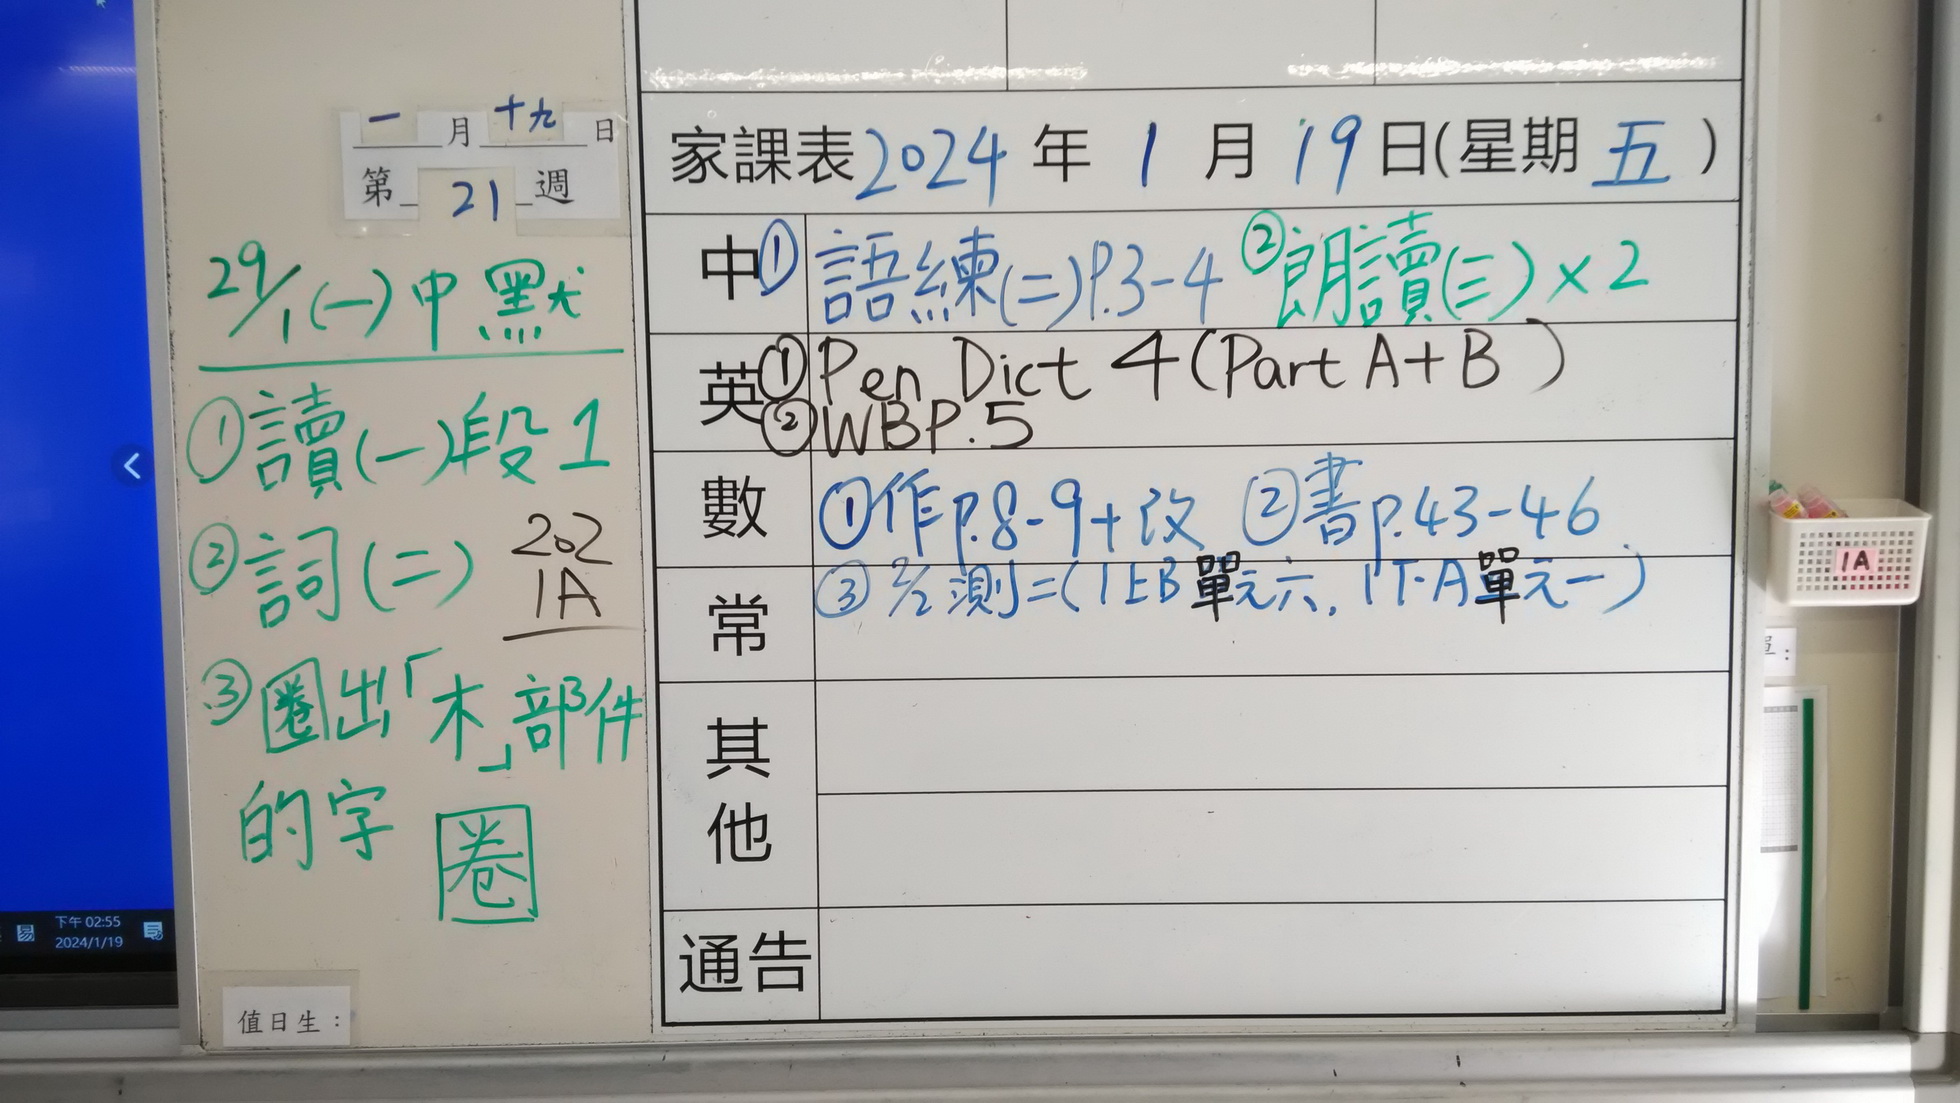 一月十九日
第21週
29/1(一)中默
①讀(一)段1
②詞(二)
202
1A
③圈出「木」部件
的字
圈
值日生：
家課表2024年1月19日(星期五)
中①語練(二)P.3-4 ②朗讀(三)×2
英①Pen Dict 4(Part A+B)
②WBP.5
數①作p.8-9+改 ②書p.43-46
常③2/2測二(1上B單元六, 1下A單元一)
其他
通告
1A
下午 02:55
2024/1/19